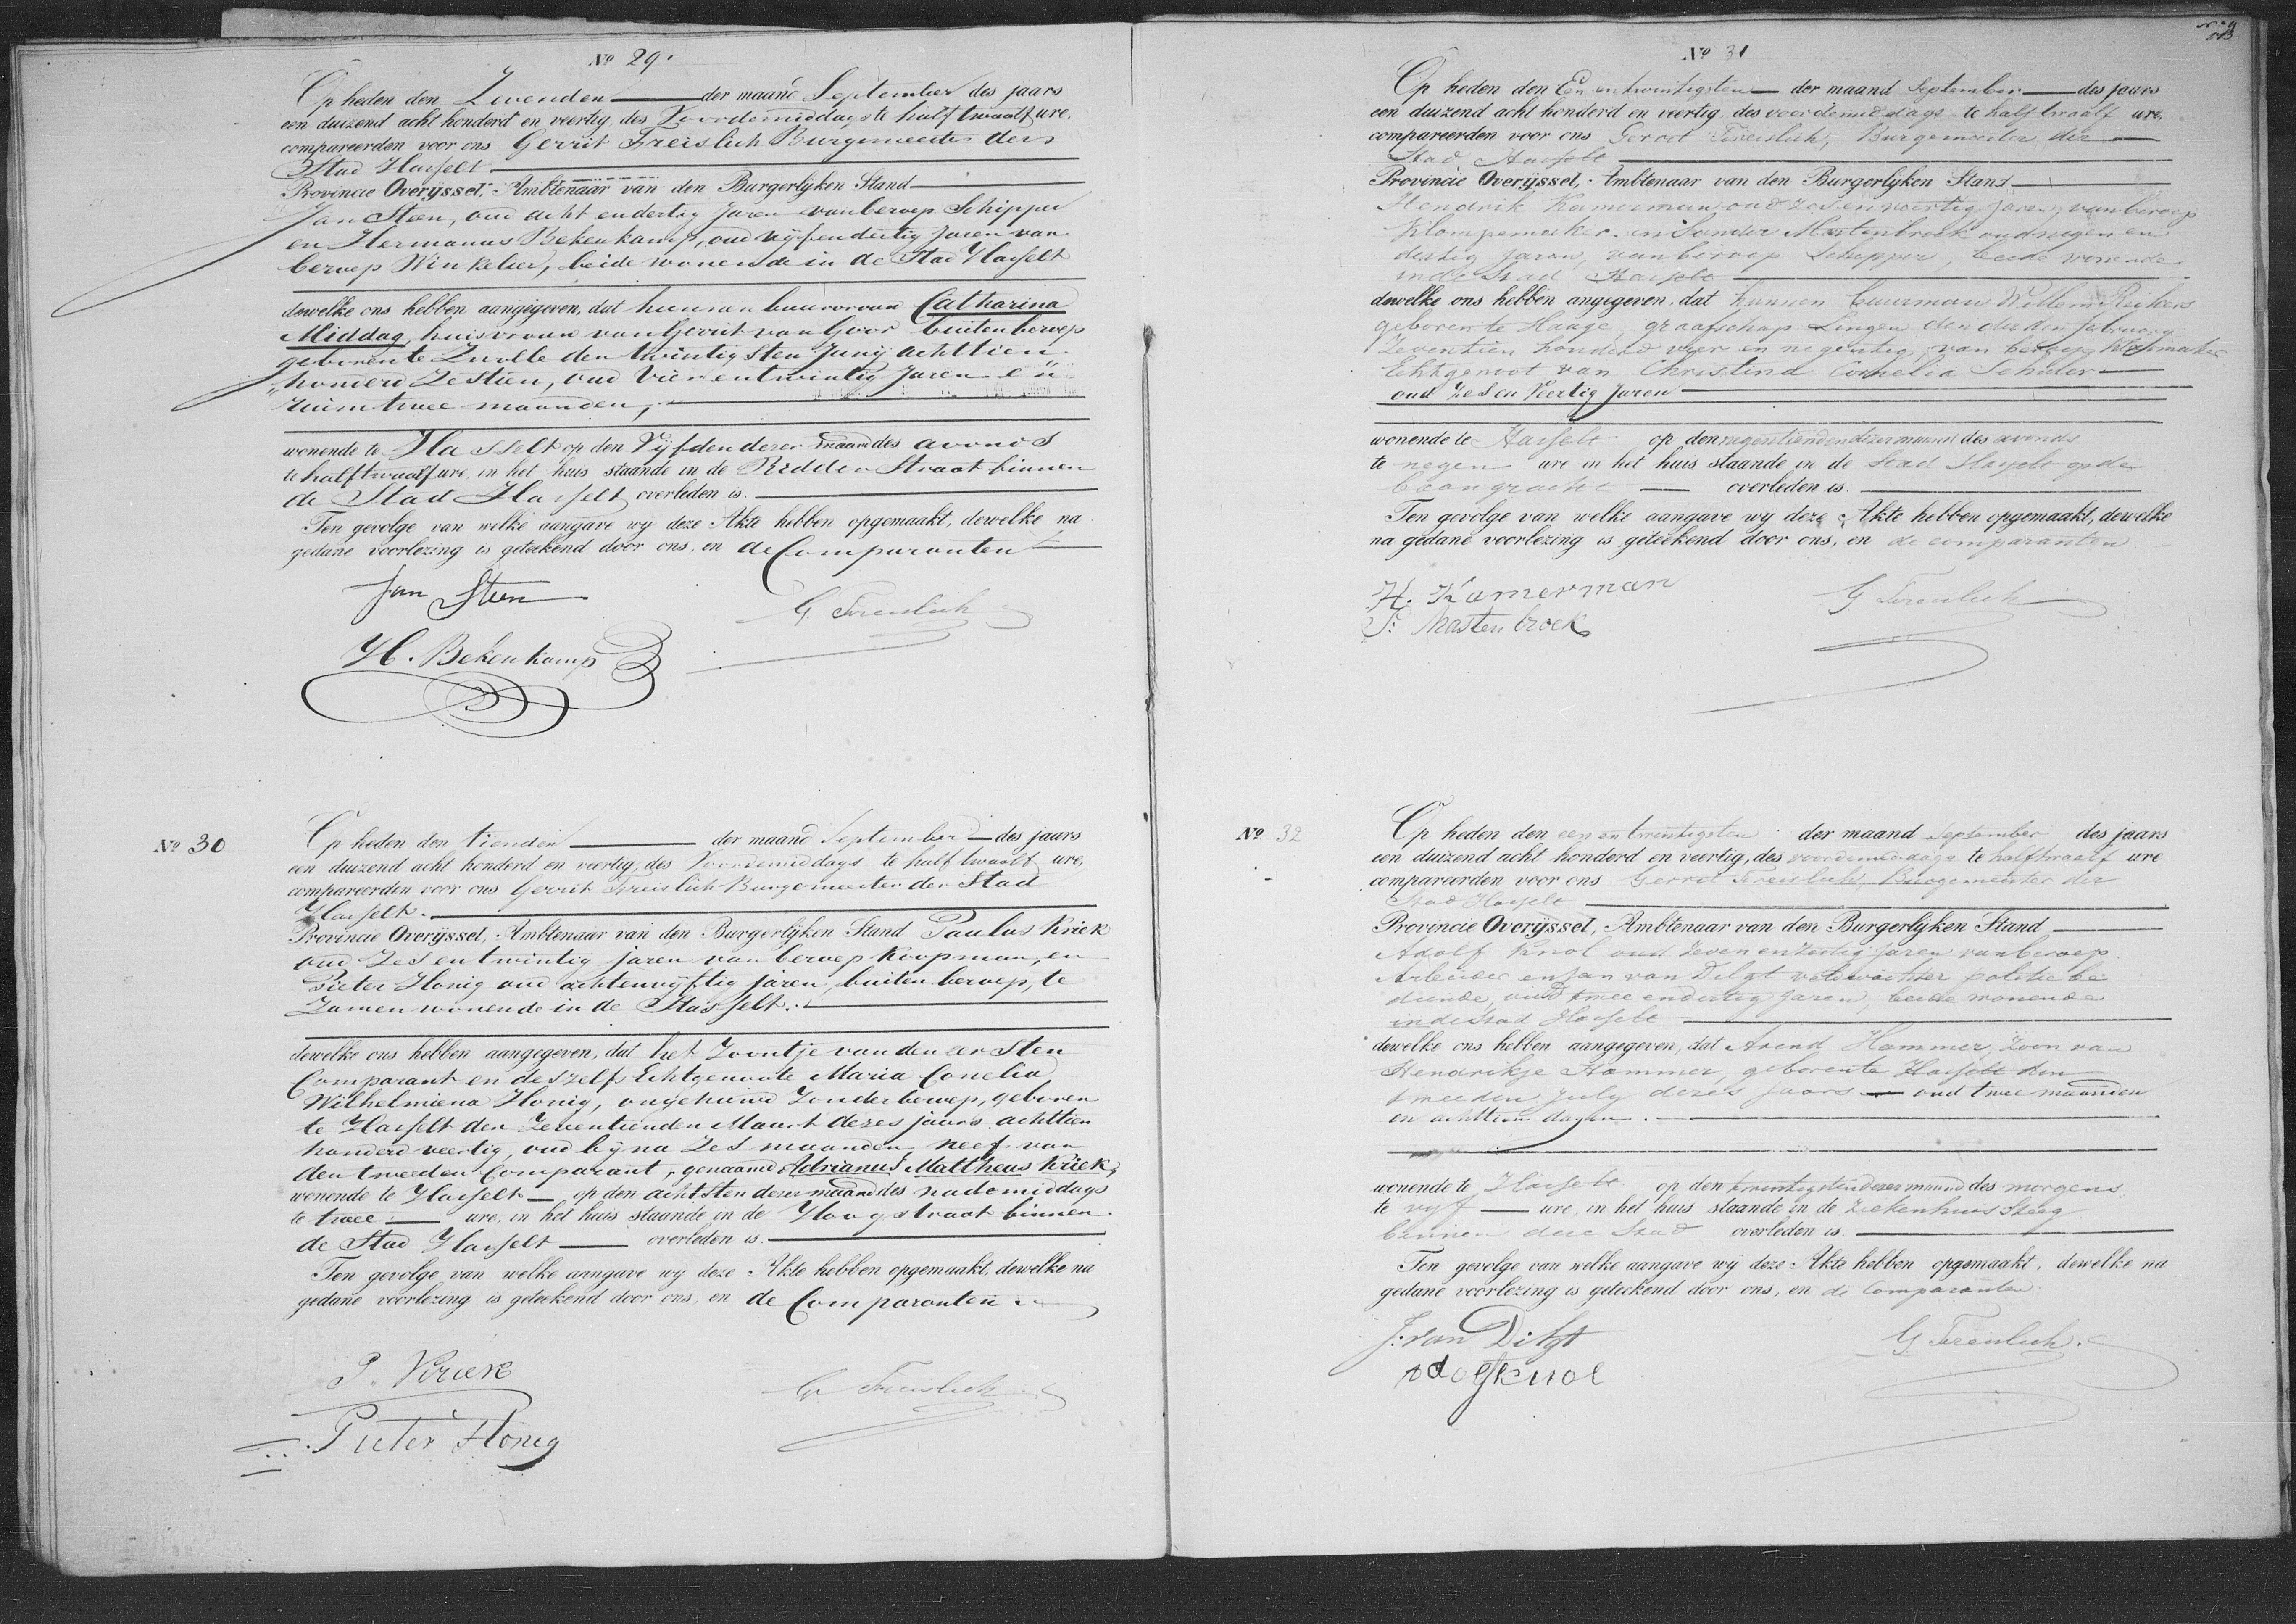 Nº 29.
Op heden den Zevenden der maand September des jaars
een duizend acht honderd en veertig, des Voordemiddags te half twaalf ure,
compareerden voor ons Gerrit Freislich Burgemeester der
Stad Hasselt
Provincie Overijssel, Ambtenaar van den Burgerlijken Stand
Jan Steen, oud acht endertig Jaren van beroep Schipper
en Hermanus Bekenkamp, oud vijfendertig Jaren van
beroep Winkelier, beide wonende in de Stad Hasselt
dewelke ons hebben aangegeven, dat hunnen buurvrouw Catharina
Middag, huisvrouw van Gerrit van Goor buiten beroep
geboren te Zwolle den twintigsten Junij achttien
honderd Zestien, oud Vierentwintig Jaren en
ruim twee maanden,
wonende te Hasselt op den Vijfden dezer maand des avonds
te half twaalf ure, in het huis staande in de Ridder Straat binnen
de Stad Hasselt overleden is.
Ten gevolge van welke aangave wij deze Akte hebben opgemaakt, dewelke na
gedane voorlezing is geteekend door ons, en de Comparanten
Jan Steen
G. Freislich
H. Bekenkamp
Nº 30
Op heden den tienden der maand September des jaars
een duizend acht honderd en veertig, des Voordemiddags te half twaalf ure,
compareerden voor ons Gerrit Freislich Burgemeester der Stad
Hasselt.
Provincie Overijssel, Ambtenaar van den Burgerlijken Stand Paulus Kriek
oud Zes entwintig jaren van beroep Koopman, en
Pieter Honig oud achtenvijftig jaren, buiten beroep, te
Zamen wonende in de Hasselt.
dewelke ons hebben aangegeven, dat het Zoontje van den eersten
Comparant en deszelfs Echtgenoote Maria Conelia
Wilhelmiena Honig, ongehuwd Zonder beroep, geboren
te Hasselt den Zeventienden Maart dezes jaars achttien
honderd veertig, oud bijna Zes maanden, neef van
den tweeden Comparant, genaamd Adrianus Mattheus Kriek,
wonende te Hasselt op den achtsten dezer maand des nademiddags
te twee ure, in het huis staande in de Hoogstraat binnen
de Stad Hasselt overleden is.
Ten gevolge van welke aangave wij deze Akte hebben opgemaakt, dewelke na
gedane voorlezing is geteekend door ons, en de Comparanten
P. Kriek
G. Freislich
Pieter Honig
Nº 31
Op heden den Een entwintigsten der maand September des jaars
een duizend acht honderd en veertig, des voordemiddags te half twaalf ure,
compareerden voor ons Gerrit Freislich, Burgemeester der
Stad Hasselt
Provincie Overijssel, Ambtenaar van den Burgerlijken Stand
Hendrik Kamerman, oud Zes en veertig Jaren, van beroep
Klompemaker en Sander Mastenbroek oud negen en
dertig Jaren, van beroep Schipper, beide wonende
in de Stad Hasselt
dewelke ons hebben angegeven, dat hunnen buurman Willem
geboren te Haage, graafschap Lingen den derden february
Zeventien honderd vier en negentig, van beroep
Echtgenoot van Christina Cornelia Schuler
oud Zes en Veertig Jaren
wonende te Hasselt op den negentienden dezer maand des avonds
te negen ure in het huis staande in de Stad Hasselt op de
overleden is.
Ten gevolge van welke aangave wij deze Akte hebben opgemaakt, dewelke
na gedane voorlezing is geteekend door ons, en de comparanten
H. Kamerman
G Freislich
S: Mastenbroek
Nº 32
Op heden den een en twintigsten der maand September des jaars
een duizend acht honderd en veertig, des voordemiddags te half twaalf ure
compareerden voor ons Gerrit Freislich, Burgemeester der
Stad Hasselt
Provincie Overijssel, Ambtenaar van den Burgerlijken Stand
Adolf Knol oud Zeven en Jaren van beroep
Arbeider en Jan van Dilgt veldwachter politie be
diende, oud twee endertig Jaren, beide wonende
in de Stad Hasselt
dewelke ons hebben aangegeven, dat Arend Hammer, Zoon van
Hendrikje Hammer, geboren te Hasselt den
tweeden July dezes jaars oud twee maanden
en achttien dagen.
wonende te Hasselt op den twintigsten dezer maand des morgens
te vijf ure, in het huis staande in de Ziekenhuis Steeg
binnen deze Stad overleden is.
Ten gevolge van welke aangave wij deze Akte hebben opgemaakt, dewelke na
gedane voorlezing is geteekend door ons, en de Comparanten
J: van Dilgt
G. Freislich.
adolf knol